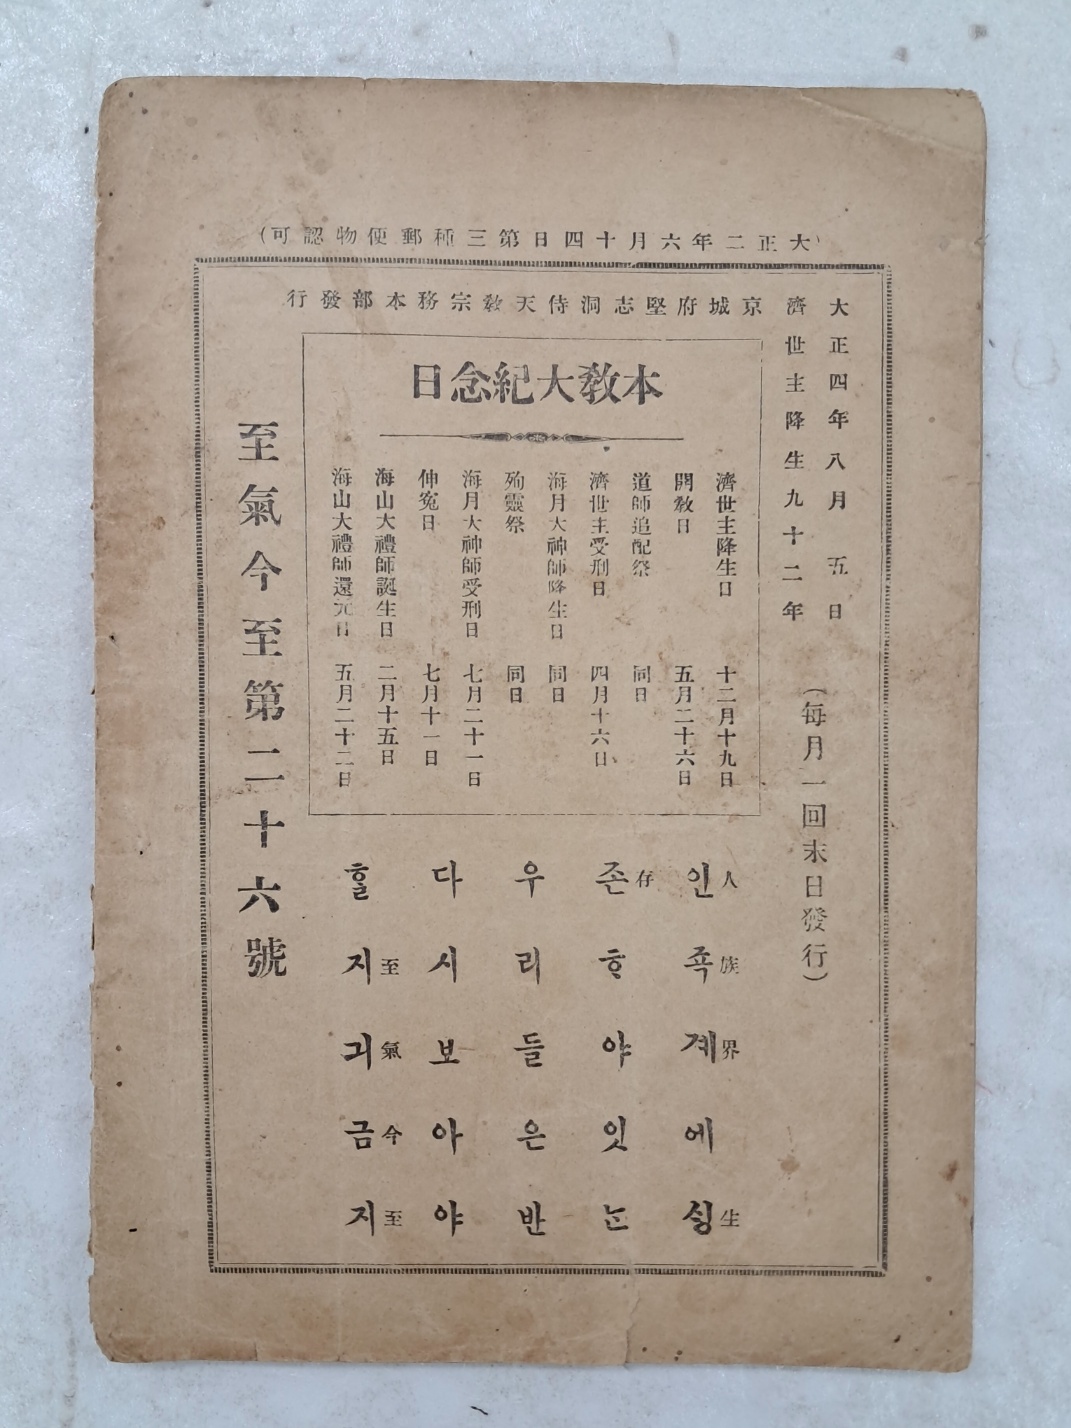 (大正二年六月十四日第三種郵便物認可)
大正四年八月 五日
濟世主降生九十二年
(每月一回末日發行)
京城府堅志洞侍天敎宗務本部發行
本敎大紀念日
濟世主降生日 十二月十九日
開敎日 五月二十六日
道師追配祭 同日
濟世主受刑日 四月十六日
海月大神師降生日 同日
殉靈祭 同日
海月大神師受刑日 七月二十一日
伸寃日 七月十一日
海山大禮師誕生日 二月十五日
海山大禮師還元日 五月二十二日
인人족族계界에ᄉᆡᆼ生
존存ᄒᆞ야잇ᄂᆞᆫ
우리들은반
다시보아야
ᄒᆞᆯ지至긔氣금今지至
至氣今至第二十六號